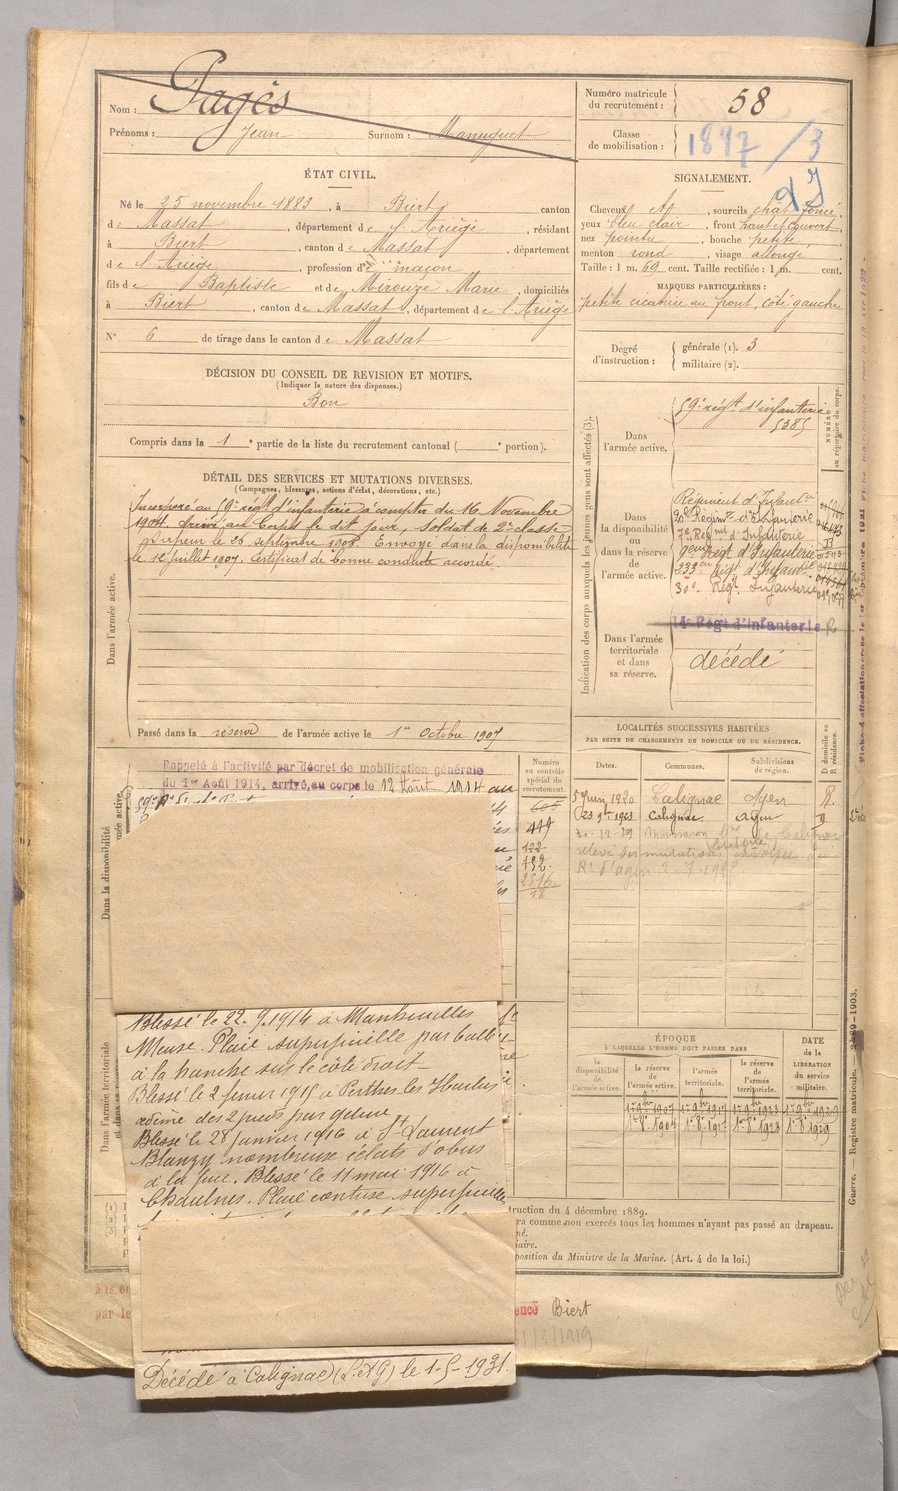 Nom : Pagès
Prénoms : Jean Surnom : Manuguet
Numéro matricule du recrutement : 58
Classe de mobilisation : 1897 / 3
ÉTAT CIVIL.
Né le 25 novembre 1883, à Biert, canton
de Massat, département de l'Ariège, résidant
à Biert, canton de Massat, département
de l'Ariège, profession de maçon
fils de Baptiste et de Mirouze Marie, domiciliés
à Biert, canton de Massat, département de l'Ariège
N° 6 de tirage dans le canton de Massat
SIGNALEMENT.
Cheveux, sourcils chât foncé,
yeux bleu clair, front haut et couvert,
nez pointu, bouche petite,
menton rond, visage allongé
Taille : 1 m. 69 cent. Taille rectifiée : 1 m. cent.
MARQUES PARTICULIÈRES :
petite cicatrice au front, côté gauche
Degré d'instruction : générale (1). 3
militaire (2).
DÉCISION DU CONSEIL DE REVISION ET MOTIFS.
(Indiquer la nature des dispenses.)
Bon
Compris dans la 1e partie de la liste du recrutement cantonal ( e portion).
DÉTAIL DES SERVICES ET MUTATIONS DIVERSES.
(Campagnes, blessures, actions d'éclat, décorations, etc.)
Dans l'armée active.
Incorporé au 59e régt d'infanterie à compter du 16 Novembre
1904. Arrivé au Corps le dit jour, soldat de 2e classe
Sapeur le 26 septembre 1906. Envoyé dans la disponibilité
le 12 juillet 1907. Certificat de bonne conduite accordé.
Passé dans la réserve de l'armée active le 1er Octobre 1907
Indication des corps auxquels les jeunes gens sont affectés (3).
NUMÉRO au répertoire du corps.
Dans l'armée active.
59e régt d'infanterie
5385
Dans la disponibilité ou dans la réserve de l'armée active.
Régiment d'Infantrie
20e Régimt d'Infanterie
7e Régmt d'Infanterie
9eme Régt d'Infanterie
233eme Régt d'Infanterie
30e Régt Infanterie
Dans l'armée territoriale et dans sa réserve.
14e Régt d'Infanterie R
décédé
LOCALITÉS SUCCESSIVES HABITÉES
PAR SUITE DE CHANGEMENTS DE DOMICILE OU DE RÉSIDENCE.
Dates. Communes. Subdivisions de région. D domicile ou R résidence.
5 juin 1920 Calignac Agen R.
23 9bre 1923 Calignac Agen D
Dans la disponibilité
Rappelé à l'activité par décret de mobilisation générale
du 1er Août 1914, arrivé au corps le 12 Août 1914 au
Numéro au contrôle spécial du recrutement.
605
449
122
132
2516
18
Dans l'armée territoriale
Blessé le 22.9.1914 à Manheulles
Meuse. Plaie superficielle par balle
à la hanche sur le côté droit
Blessé le 2 février 1915 à Perthes les Hurlus
œdème des 2 pieds par gelure
Blessé le 28 Janvier 1916 à St Laurent
Blangy nombreux éclats d'obus
à la face. Blessé le 11 mai 1916 à
Chaulnes. Plaie contuse superficielle
ÉPOQUE
À LAQUELLE L'HOMME DOIT PASSER DANS
la disponibilité de l'armée active. la réserve de l'armée active. l'armée territoriale. la réserve de l'armée territoriale. DATE de la LIBÉRATION du service militaire.
1er 8bre 1907 1er 8bre 1917 1er 8bre 1923 1er 8bre 1929
struction du 4 décembre 1889.
ra comme non exercés tous les hommes n'ayant pas passé au drapeau.
né.
iaire.
position du Ministre de la Marine. (Art. 4 de la loi.)
par le
Biert
/3/1919
Décédé à Calignac (L. et G) le 1-5-1931.
Guerre. — Registre matricule. 89-1903.